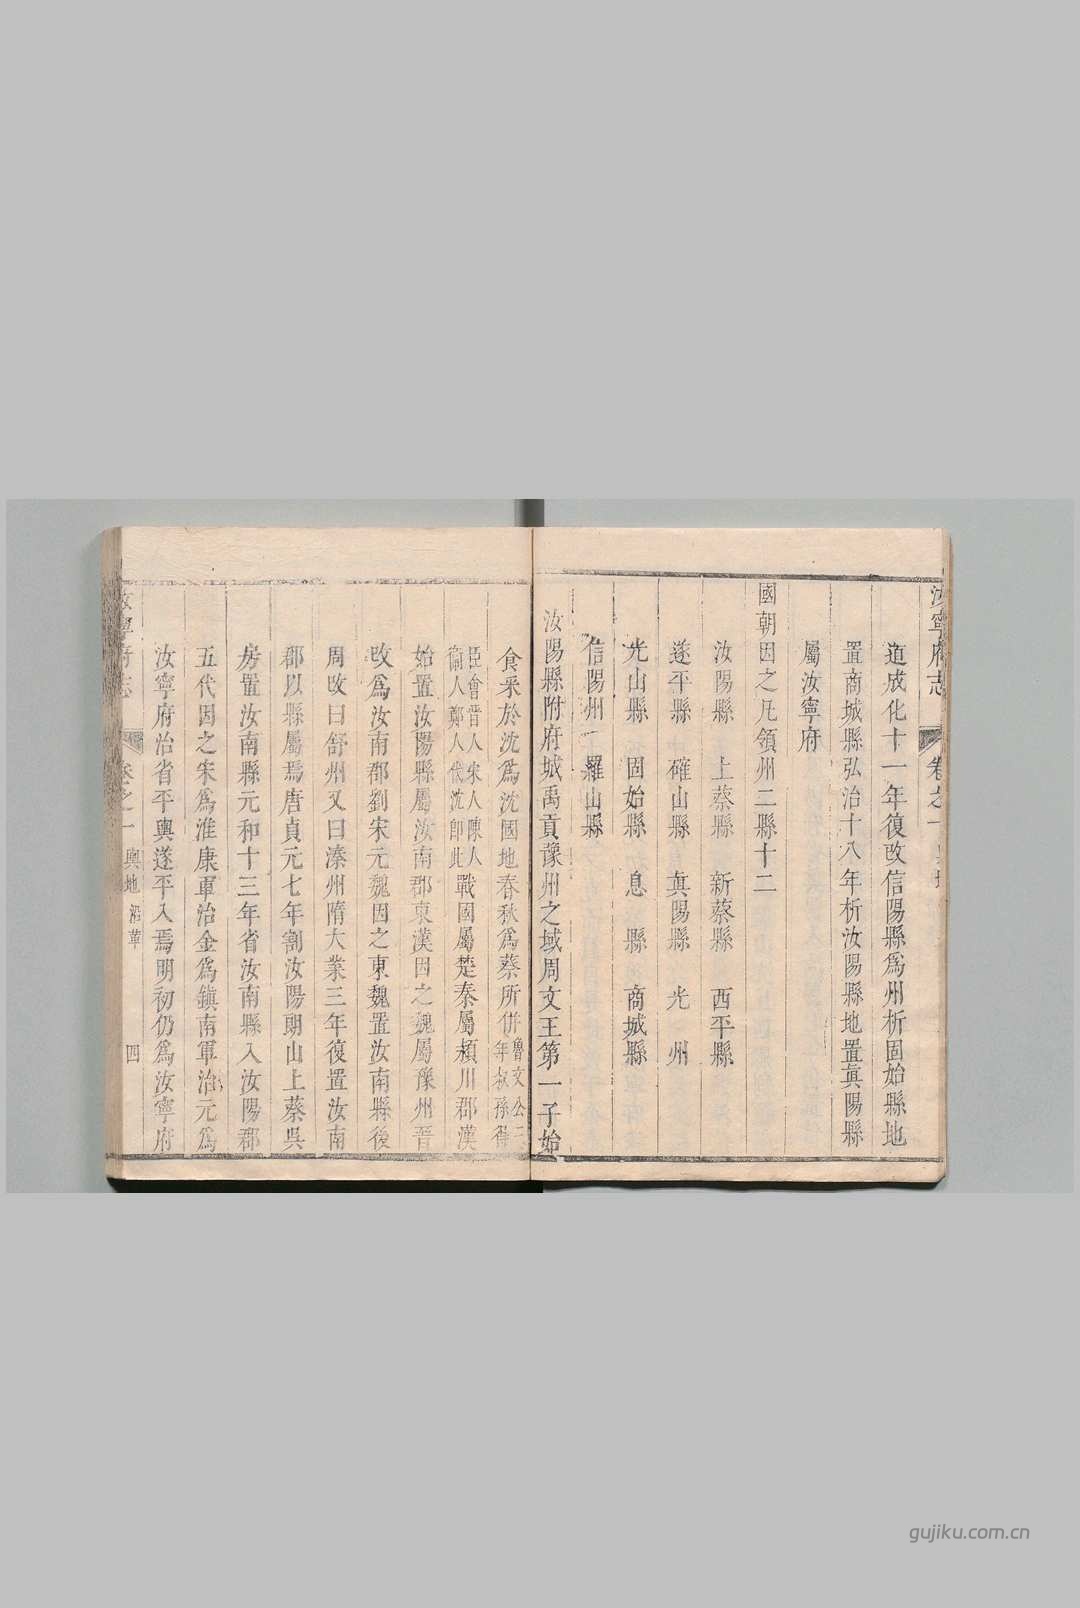 汝寧府志
卷之一
道成化十一年復改信陽縣爲州析固始縣地
置商城縣弘治十八年析汝陽縣地置眞陽縣
屬汝寧府
國朝因之凡領州二縣十二
汝陽縣 上蔡縣 新蔡縣 西平縣
遂平縣 確山縣 眞陽縣 光州
光山縣 固始縣 息縣 商城縣
信陽州 羅山縣
汝陽縣附府城禹貢豫州之域周文王第一子始
食采於沈爲沈國地春秋爲蔡所併魯文公三年叔孫得
臣會晉人宋人陳人衞人鄭人伐沈卽此戰國屬楚秦屬潁川郡漢
始置汝陽縣屬汝南郡東漢因之魏屬豫州晉
改爲汝南郡劉宋元魏因之東魏置汝南縣後
周改曰舒州又曰溱州隋大業三年復置汝南
郡以縣屬焉唐貞元七年割汝陽朗山上蔡吳
房置汝南縣元和十三年省汝南縣入汝陽郡
五代因之宋爲淮康軍治金爲鎭南軍治元爲
汝寧府治省平輿遂平入焉明初仍爲汝寧府
汝寧府志
卷之一 輿地 沿革 四
gujiku.com.cn